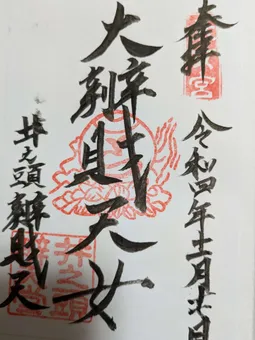 奉拝
令和四年十二月廿日
大辨財天女
井之頭辨財天